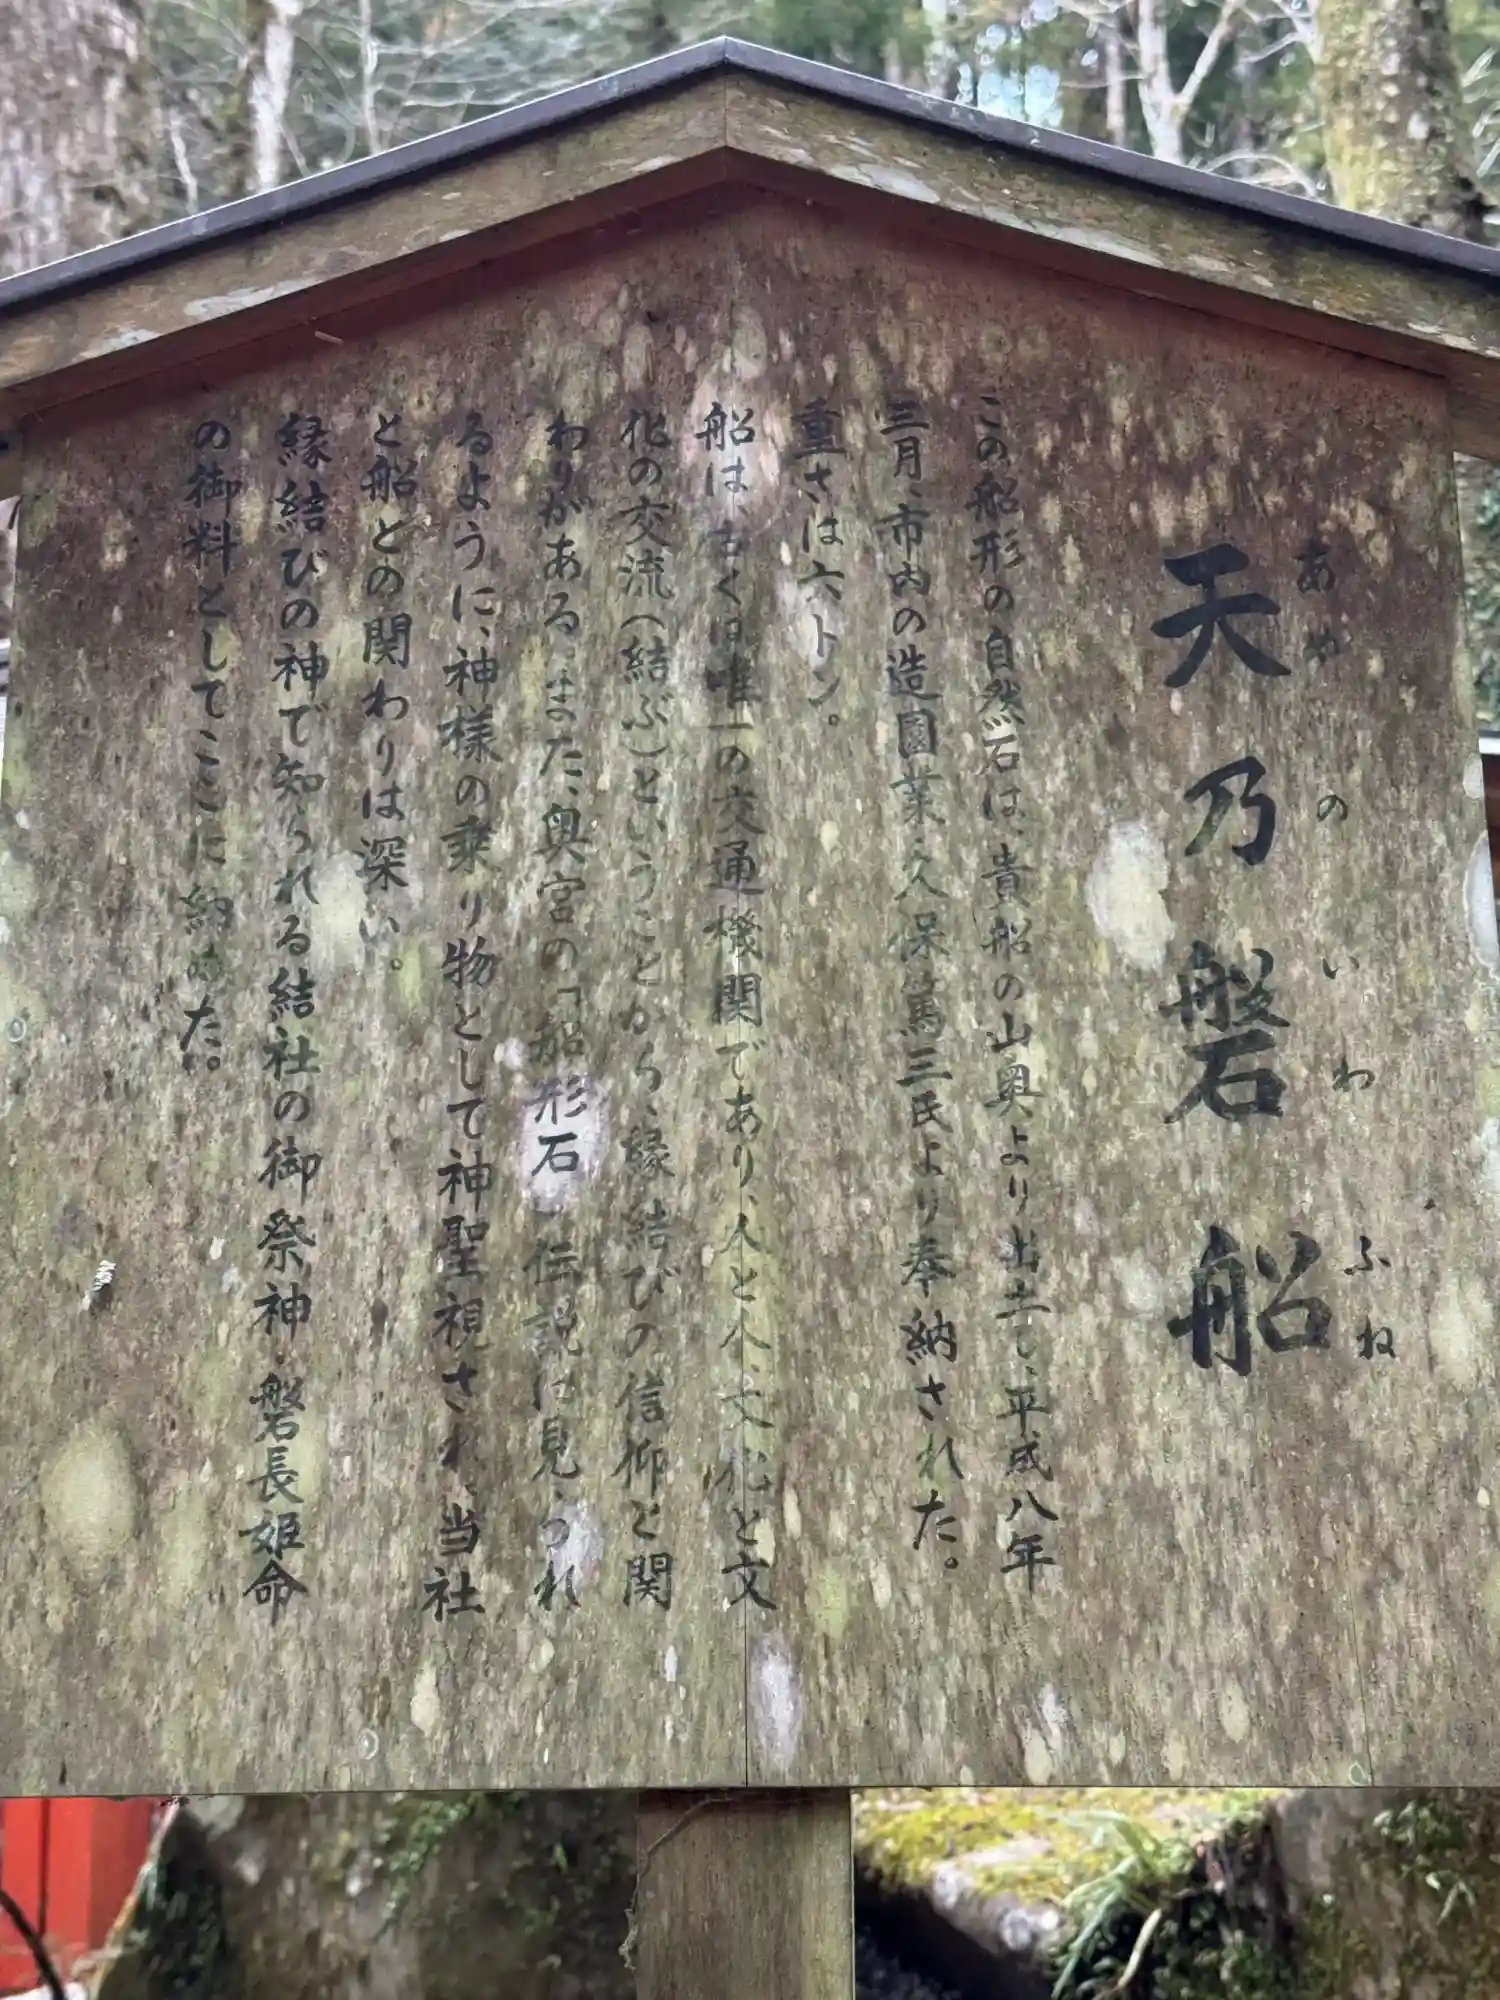 天乃磐船
あめのいわふね
この船形の自然石は、貴船の山奥より出土し、平成八年
三月、市内の造園業・久保篤三氏より奉納された。
重さは六トン。
船は、古くは唯一の交通機関であり、人と人、文化と文
化の交流(結ぶ)ということから、縁結びの信仰と関
わりがある。また、奥宮の「船形石」伝説に見られ
るように、神様の乗り物として神聖視され、当社
と船との関わりは深い。
縁結びの神で知られる結社の御祭神・磐長姫命
の御料としてここに納めた。